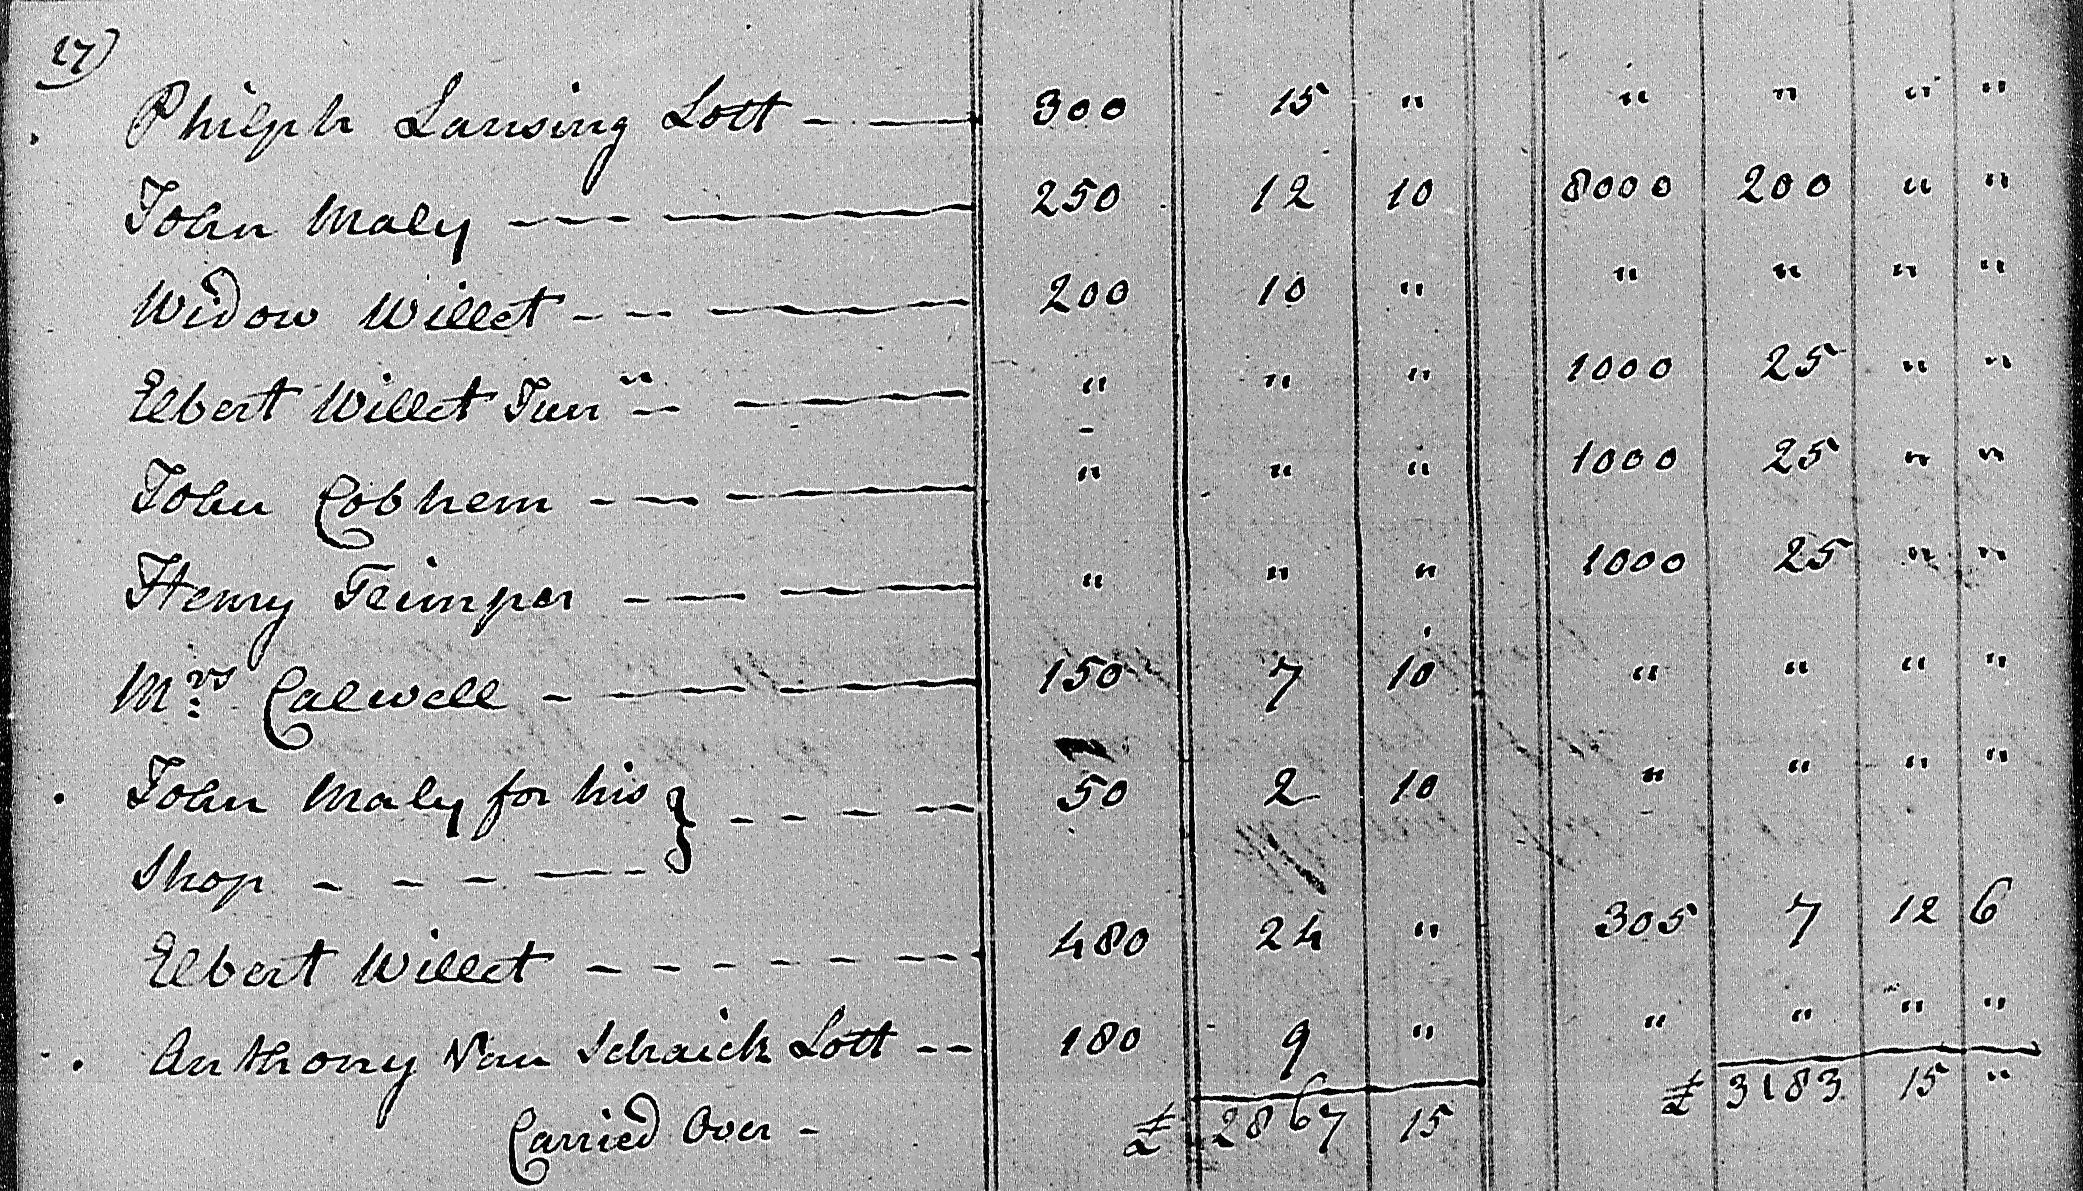 27)
Philiph Lansing Lott - — 300 15 " " " " "
John Maly - - - — 250 12 10 8000 200 " "
Widow Willet - - — 200 10 " " " " "
Elbert Willet Junr - — " " " 1000 25 " "
John Cobhem - — — " " " 1000 25 " "
Henry — — " " " 1000 25 " "
Mrs Calwell - — — 150 7 10 " " " "
John Maly for his } - - - - 50 2 10 " " " "
Shop - - - — -
Elbert Willet - - - - - - - 480 24 " 305 7 12 6
Anthony Van Schaick Lott - - 180 9 " " " " "
Carried Over - £ 2867 15 £ 3183 15 "